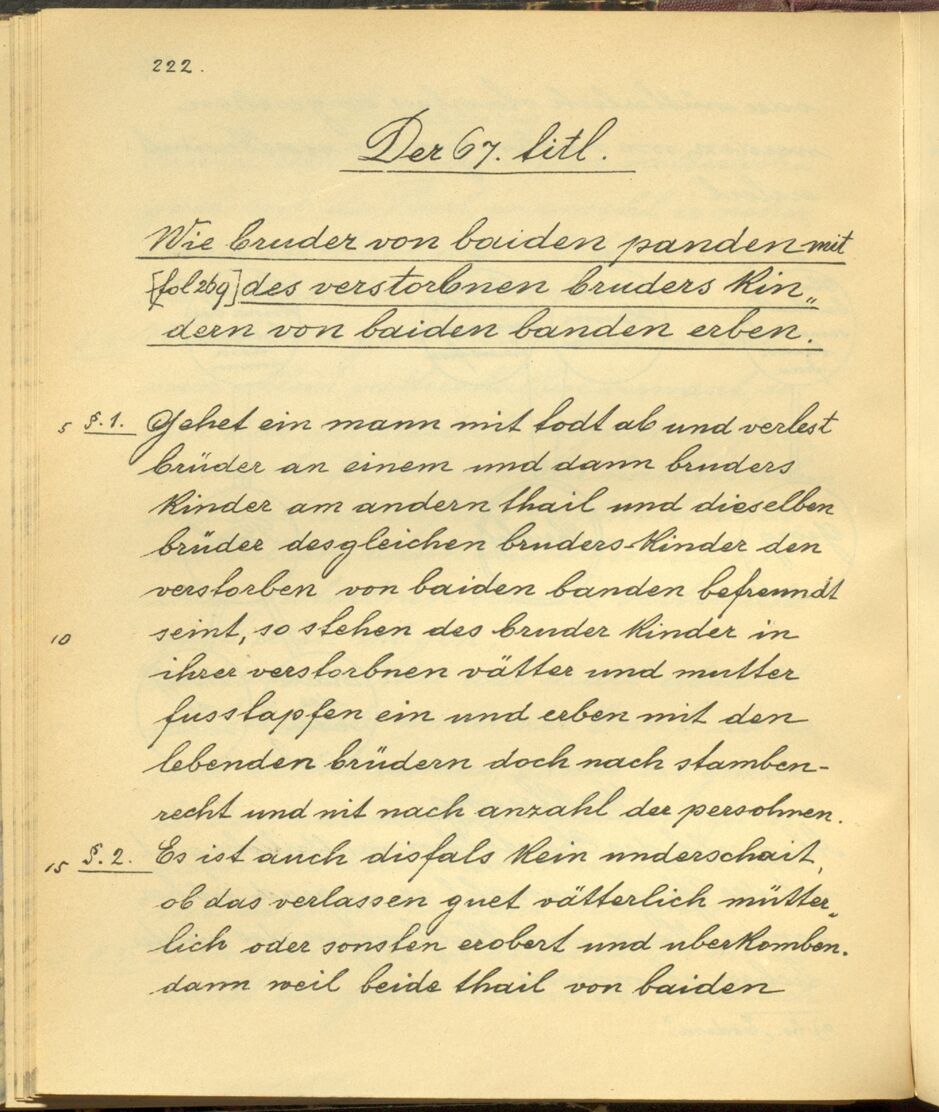 222.
Der 67. titl.
Wie bruder von baiden panden mit
[fol 269] des verstorbnen bruders kin„
dern von baiden banden erben.
5 §. 1. Gehet ein mann mit todt ab und verlest
brüder an einem und dann bruders
kinder am andern thail und dieselben
brüder desgleichen bruders-kinder den
verstorben von baiden banden befreundt
10 seint, so stehen des bruder kinder in
ihrer verstorbnen vätter und mutter
fusstapfen ein und erben mit den
lebenden brüdern doch nach stamben-
recht und nit nach anzahl der persohnen.
15 §. 2. Es ist auch disfals kein underschait,
ob das verlassen guet vätterlich mütter„
lich oder sonsten erobert und uberkomben.
dann weil beide thail von baiden